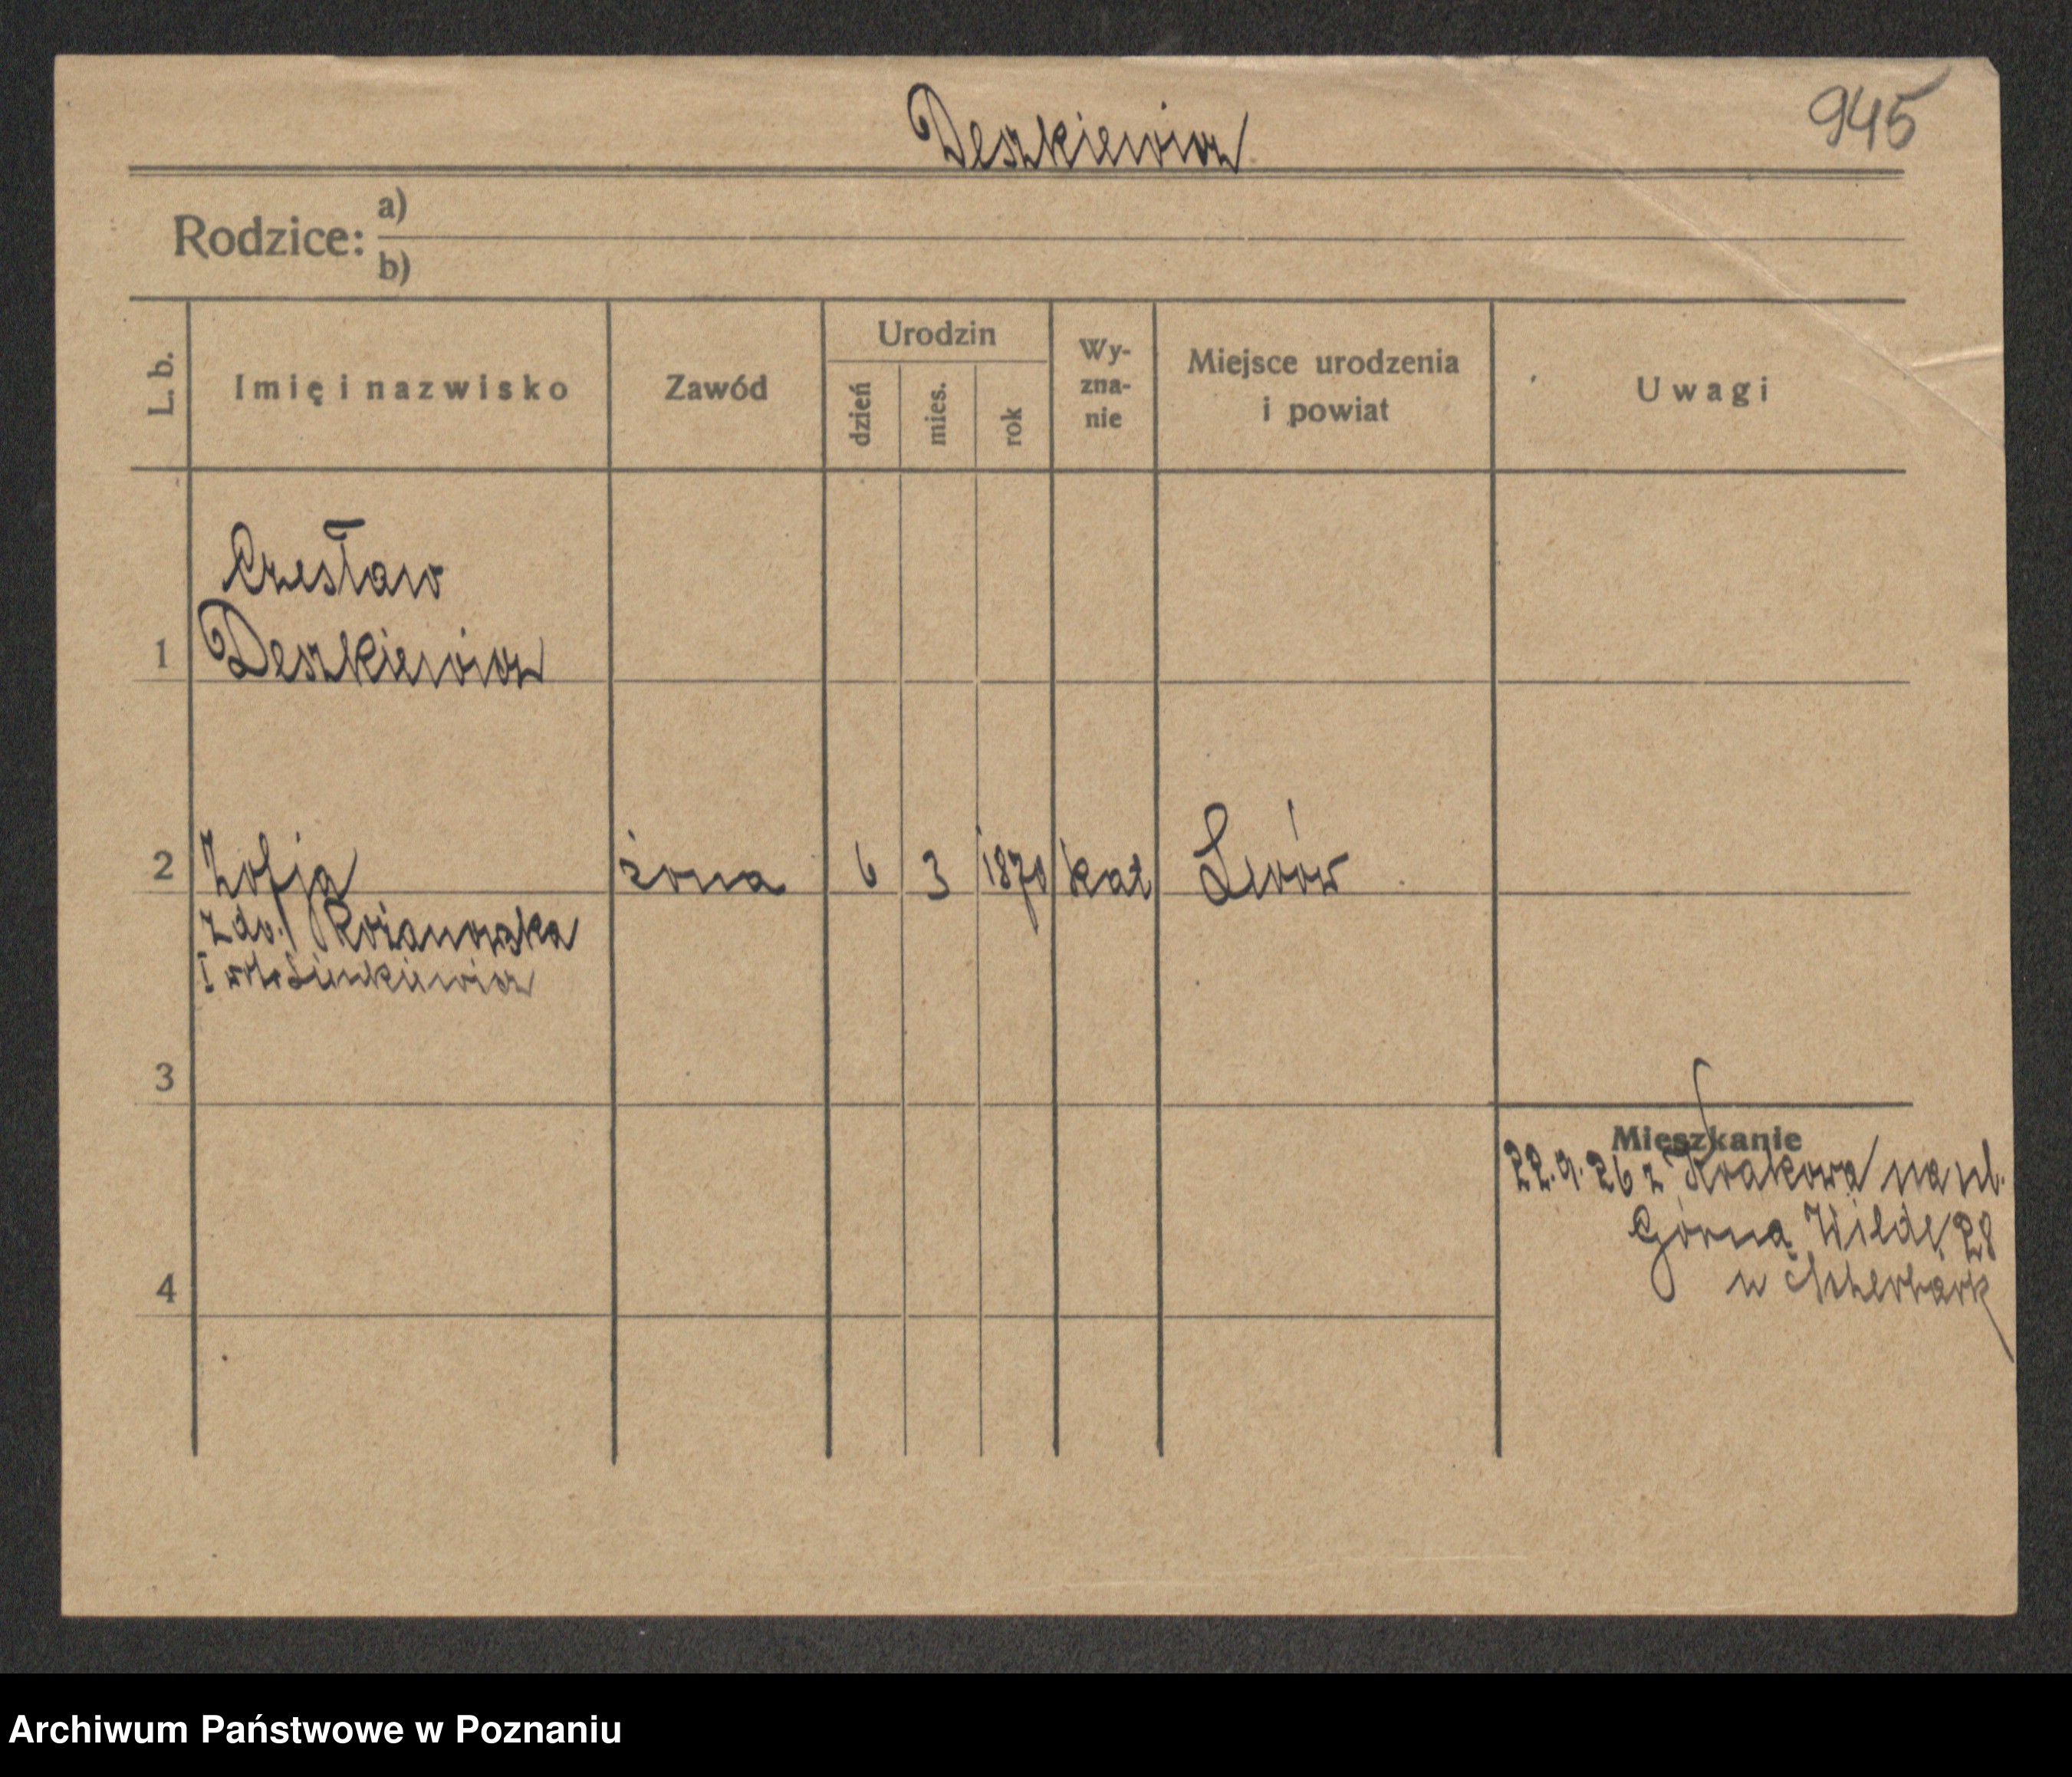 Deszkiewicz
945
Rodzice: a)
b)
L. b.
Imię i nazwisko
Zawód
Urodzin
dzień
mies.
rok
Wy-
zna-
nie
Miejsce urodzenia
i powiat
Uwagi
Czesław
1 Deszkiewicz
2 Zofja żona 6 3 1870 kat Lwów
zdo. Rożanowska
I Sienkiewicz
3
Mieszkanie
22.9.26 z Krakowa na ul.
Górna Wilda 28
u
4
Archiwum Państwowe w Poznaniu